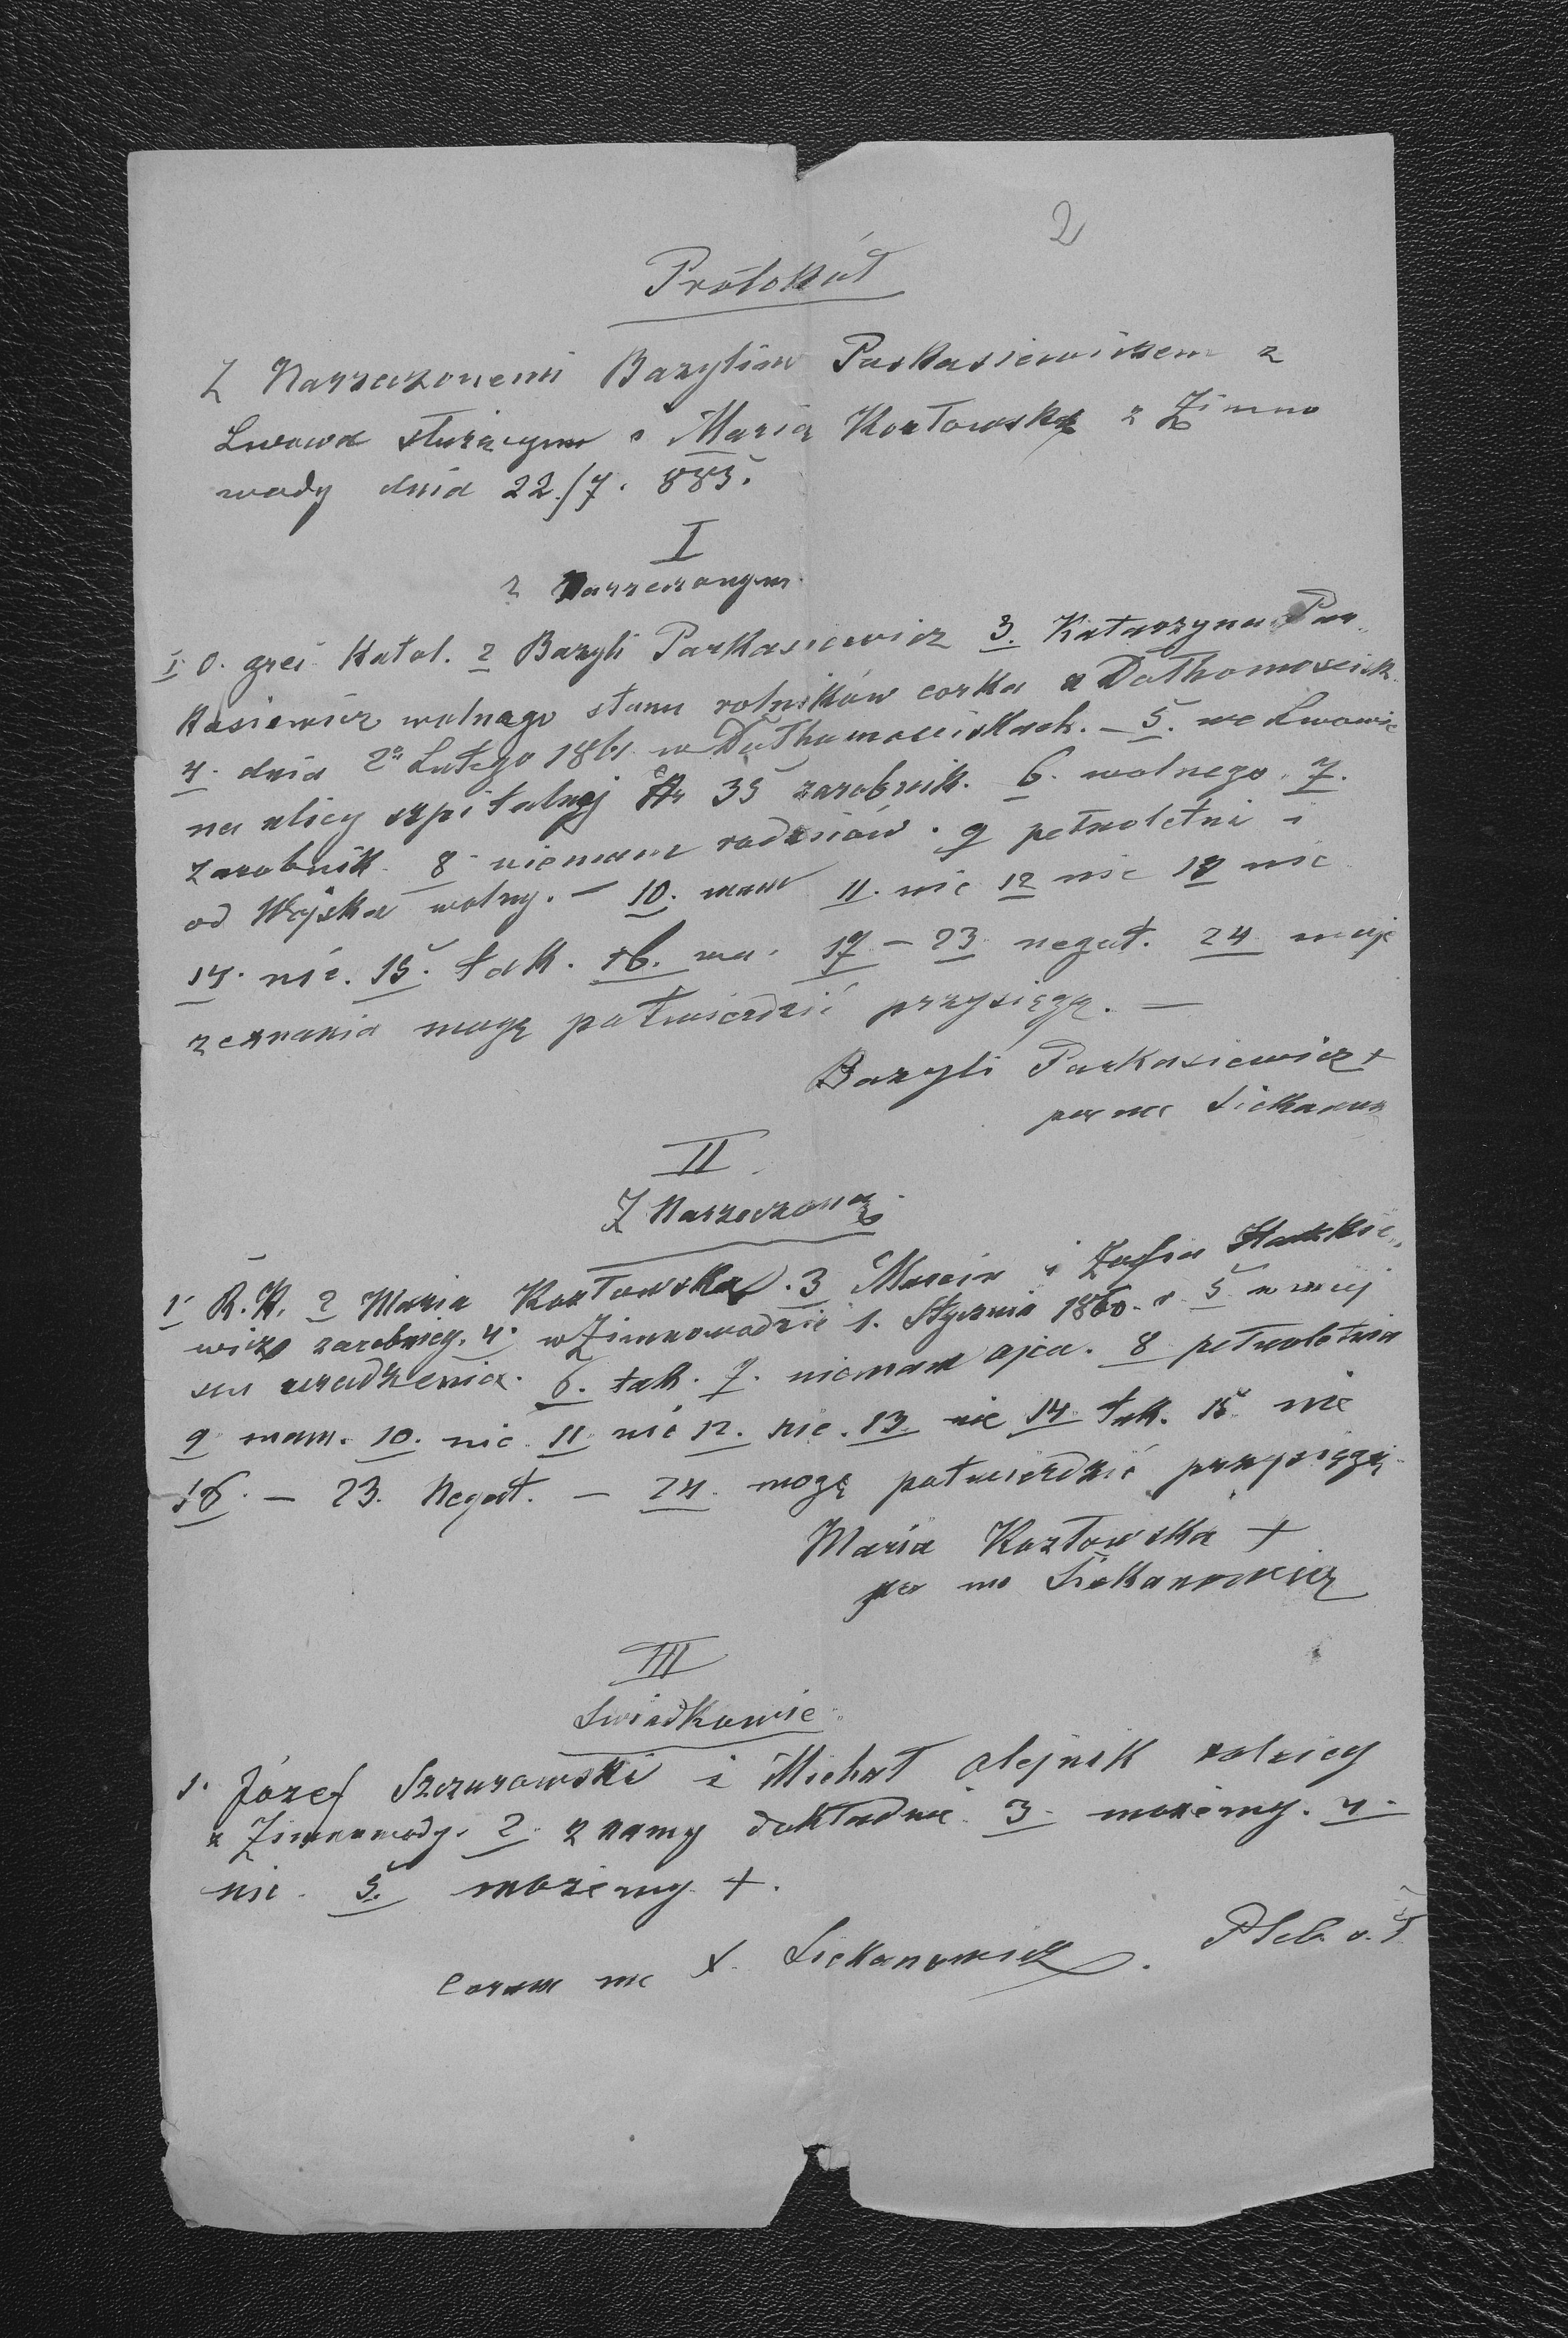 2
Protokół
Z Narzeczonemi Bazylim Parkasiewiczem z
Lwowa służącym i Marią Kozłowską z Zimno
wody dnia 22./7. 885.
I
z Narzeczonym.
1 O. grei Katol. 2 Bazyli Parkasiewicz 3. Katarzyna Par„
kasiewicz wolnego stanu rolników corka z Dołhomościsk
4. dnia 2 Lutego 1861 w Dołhomościskach. – 5. we Lwowie
na ulicy szpitalnej Nr 35 zarobnik. 6. wolnego. 7.
zarobnik. 8 niemam rodziców. 9 pełnoletni i
od Wojska wolny. – 10. mam 11. nie 12 nie 13 nie
14. nie. 15. tak. 16. 17 – 23 negat. 24 moje
zeznania mogę potwierdzić przysięgą. –
Bazyli Parkasiewicz +
per me
II
Z Narzeczoną.
1 R. K. 2 Maria Kozłowska. 3 Marcin i Zofia
zarobnicy. 4. w Zimnowodzie 1. Stycznia 1860. 5 w miej
scu urodzenia. 6. tak. 7. niemam ojca. 8 pełnoletnia
9 mam. 10. nie 11 nie 12. nie. 13. nie 14 tak. 15 nie
16. – 23. Negat. – 24. mogę potwierdzić przysięgą
Maria Kozłowska +
per me Siekanowicz
III
Swiadkowie
1. Józef Szczurowski i Michał Olejnik rolnicy
z Zimnowody. 2. znamy dokładnie. 3. możemy. 4.
nie. 5. możemy +.
Coram me X. Siekanowicz. Pleb. o. ł